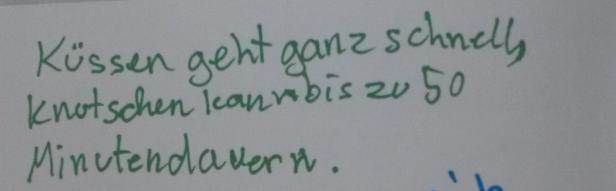 Küssen geht ganz schnell,
knutschen kann bis zu 50
Minuten dauern.